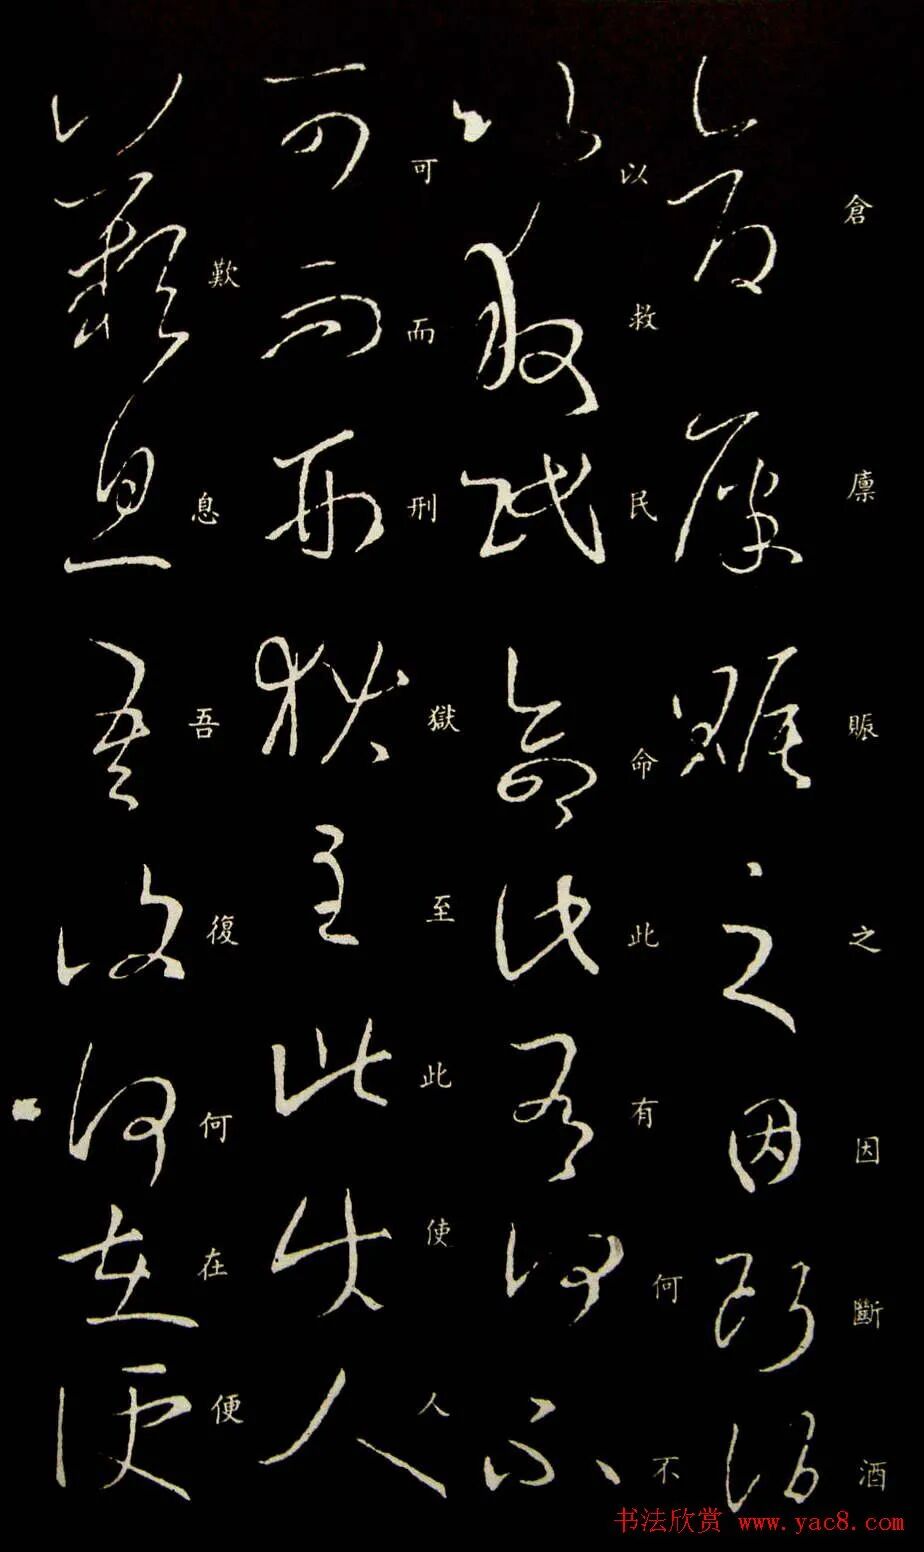 倉廩賑之因斷酒
以救民命此有何不
可而刑獄至此使人
歎息吾復何在便
书法欣赏 www.yac8.com